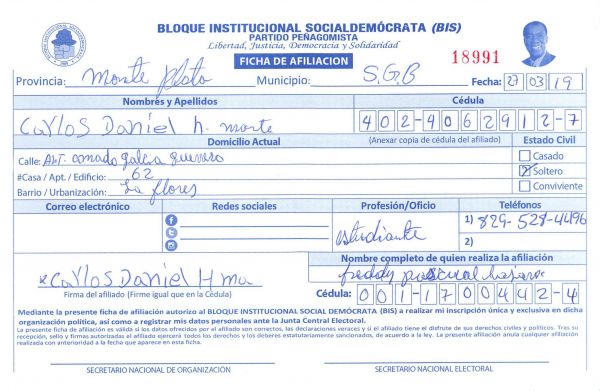 BLOQUE INSTITUCIONAL SOCIALDEMÓCRATA (BIS)
PARTIDO PEÑAGOMISTA
Libertad, Justicia, Democracia y Solidaridad
FICHA DE AFILIACION
18991
Provincia: Monte Plata Municipio: S.G.B Fecha: 27 03 19
Nombres y Apellidos Cédula
Carlos Daniel h. monte 402-4062912-7
Domicilio Actual (Anexar copia de cédula del afiliado) Estado Civil
Calle: Amado Garcia guerrero Casado
#Casa / Apt. / Edificio: 62 Soltero
Barrio / Urbanización: La flores Conviviente
Correo electrónico Redes sociales Profesión/Oficio Teléfonos
estudiante 1) 829-528-4496
2)
Nombre completo de quien realiza la afiliación
Carlos Daniel H freddy pascual
Firma del afiliado (Firme igual que en la Cédula) Cédula: 001-1700442-4
Mediante la presente ficha de afiliación autorizo al BLOQUE INSTITUCIONAL SOCIAL DEMÓCRATA (BIS) a realizar mi inscripción única y exclusiva en dicha
organización política, así como a registrar mis datos personales ante la Junta Central Electoral.
La presente ficha de afiliación es válida si los datos ofrecidos por el afiliado son correctos, las declaraciones veraces y si el afiliado tiene el disfrute de sus derechos civiles y políticos. Tras su
recepción, sello y firmas autorizadas el afiliado ejercerá todos los derechos y los deberes estatutariamente sancionados, de acuerdo a la ley. La presente afiliación anula cualquier afiliación
realizada con anterioridad a la fecha que aparece en esta ficha.
SECRETARIO NACIONAL DE ORGANIZACIÓN SECRETARIO NACIONAL ELECTORAL